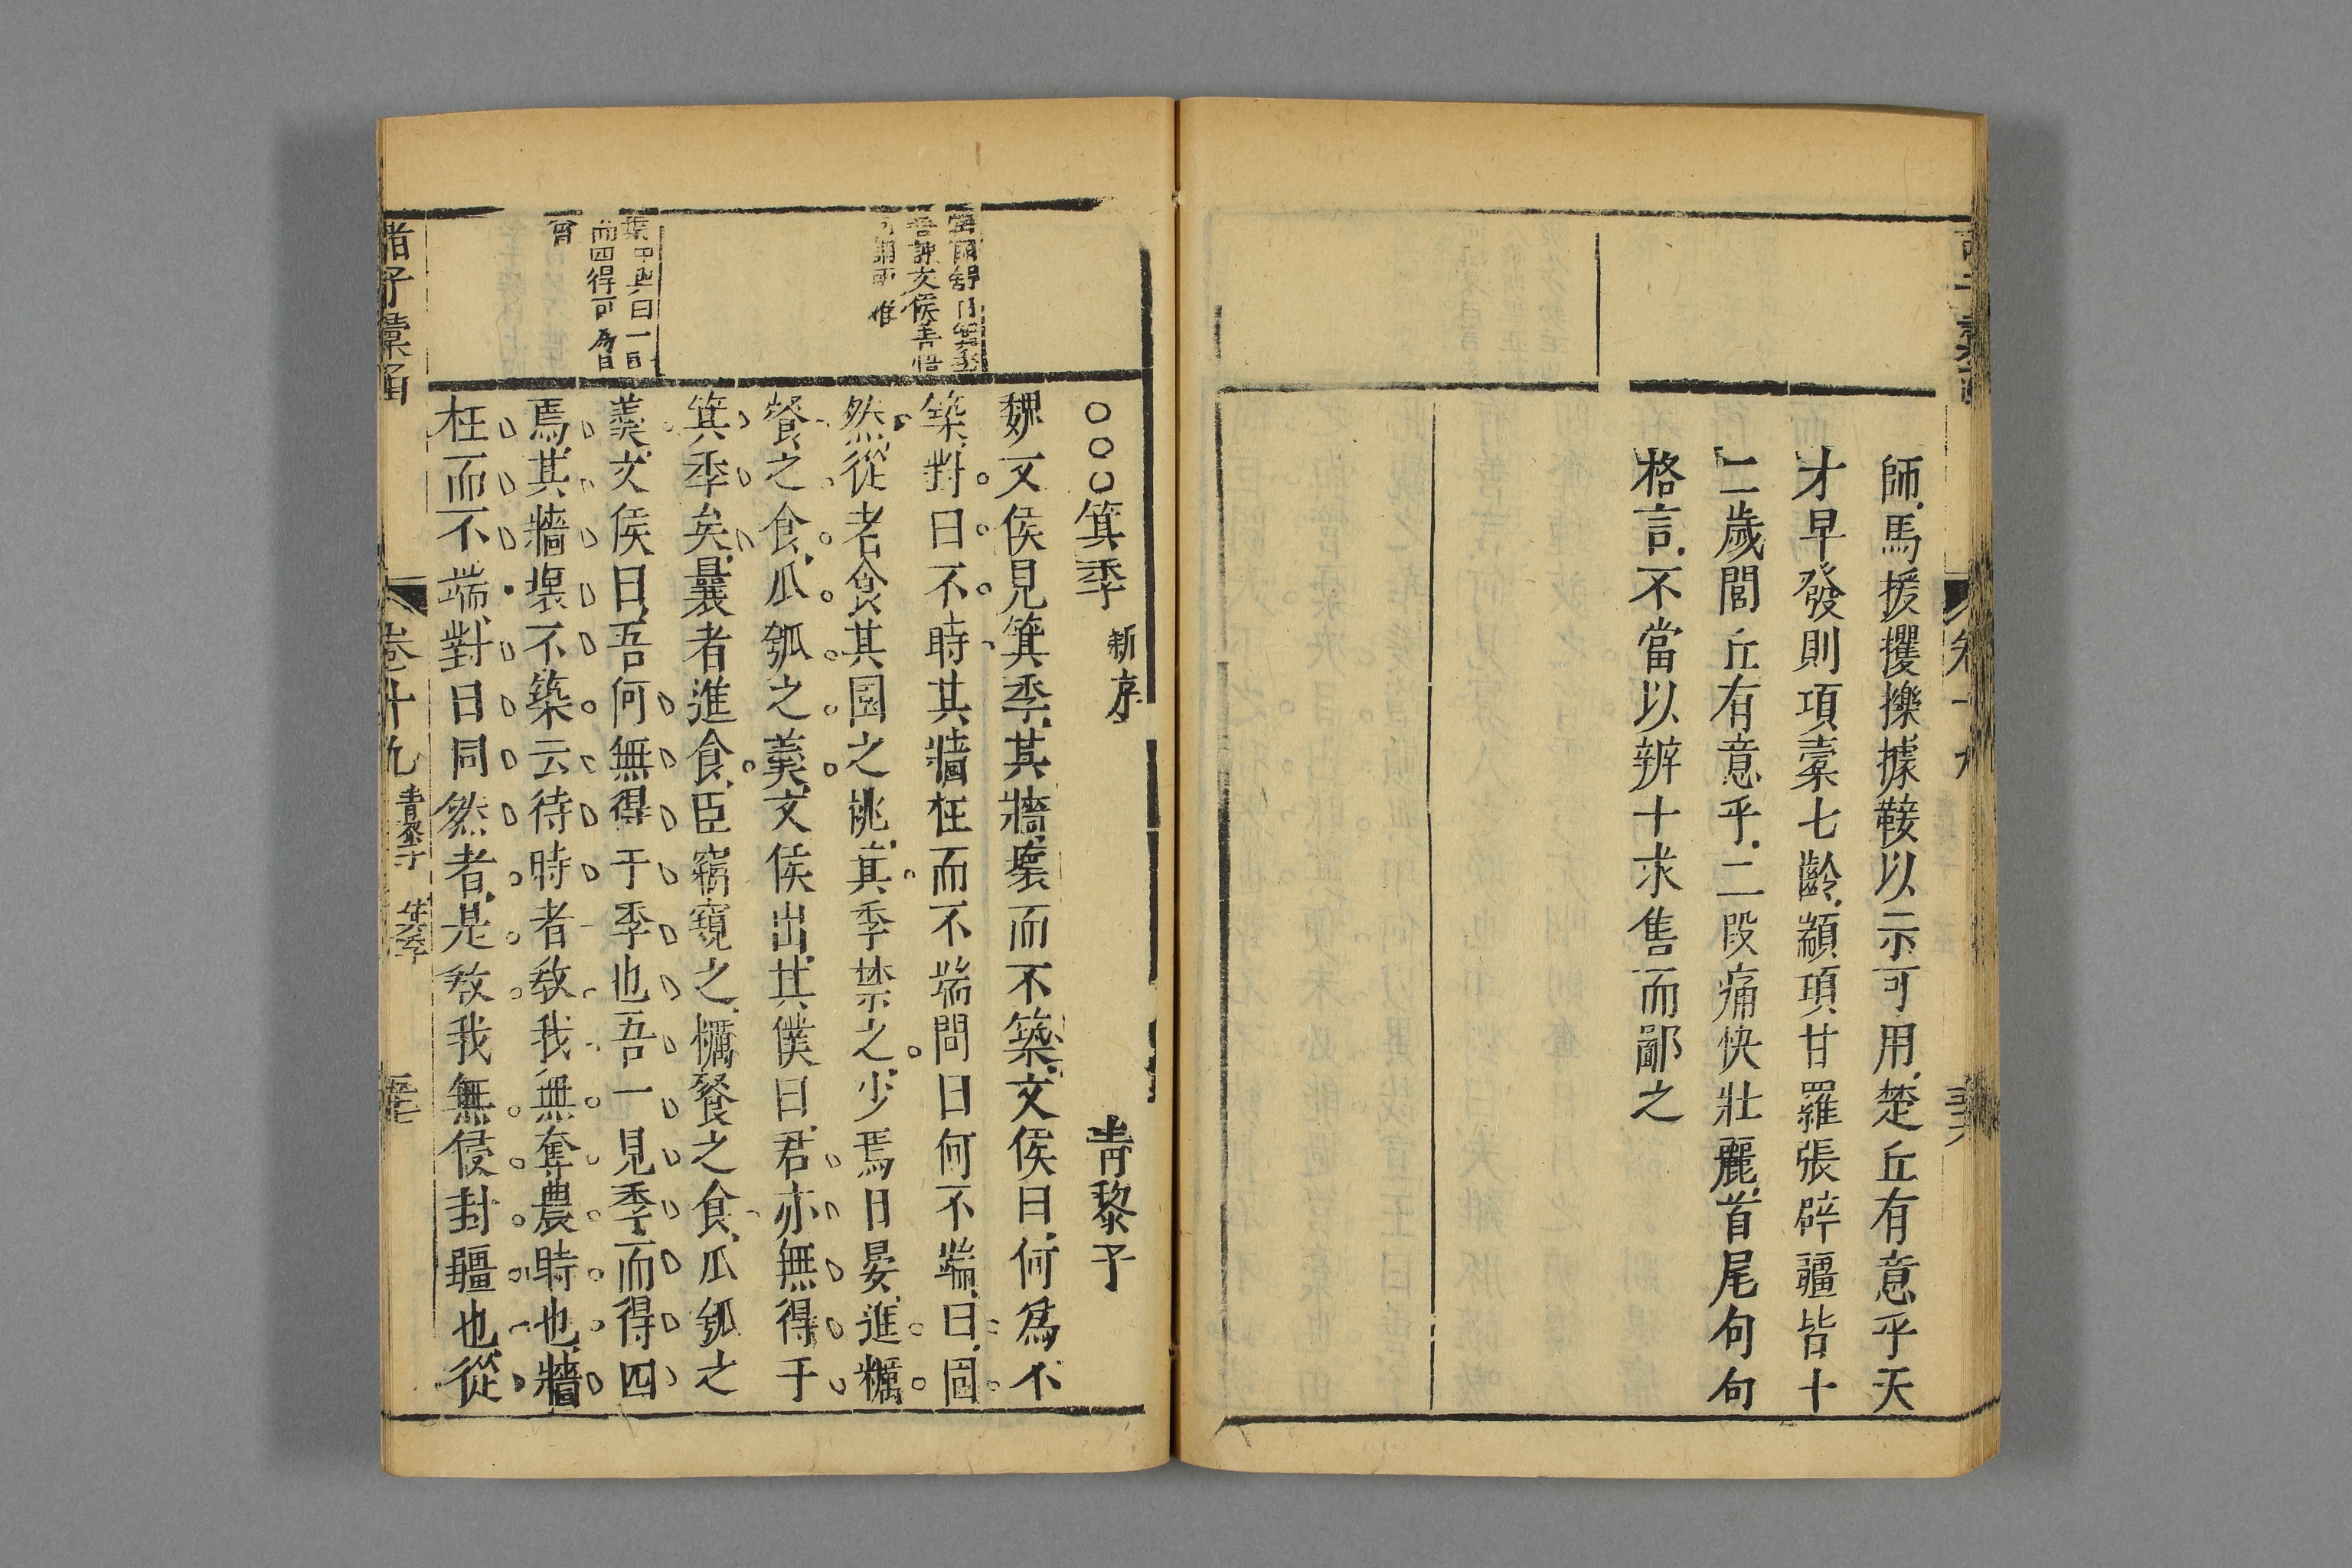 師馬援攖擽據鞍以示可用楚丘有意乎天
才早發則項橐七齡顓頊甘羅張辟疆皆十
二歲閭丘有意乎二段痛快壯麗首尾句句
格言不當以辨十求售而鄙之
卷十九
○○○箕季 新序 青黎子
魏文侯見箕季其牆壞而不築文侯曰何爲不
築對曰不時其牆枉而不端問曰何不端曰固
然從者食其園之桃箕季禁之少焉日晏進糲
餐之食瓜瓠之羹文侯出其僕曰君亦無得于
箕季矣曩者進食臣竊窺之糲餐之食瓜瓠之
羹文侯曰吾何無得于季也吾一見季而得四
焉其牆壞不築云待時者敎我無奪農時也牆
枉而不端對曰同然者是敎我無侵封疆也從
而四得可爲
諸子彙函
卷十九 青黎子 箕季